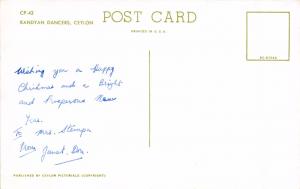 CP-43
KANDYAN DANCERS, CEYLON
POST CARD
PRINTED IN U.S.A.
Wishing you a Happy
Christmas and a Bright
and Prosperous New
Year.
To Mrs. Stemper
From Janet
PUBLISHED BY CEYLON PICTORIALS (COPYRIGHT)